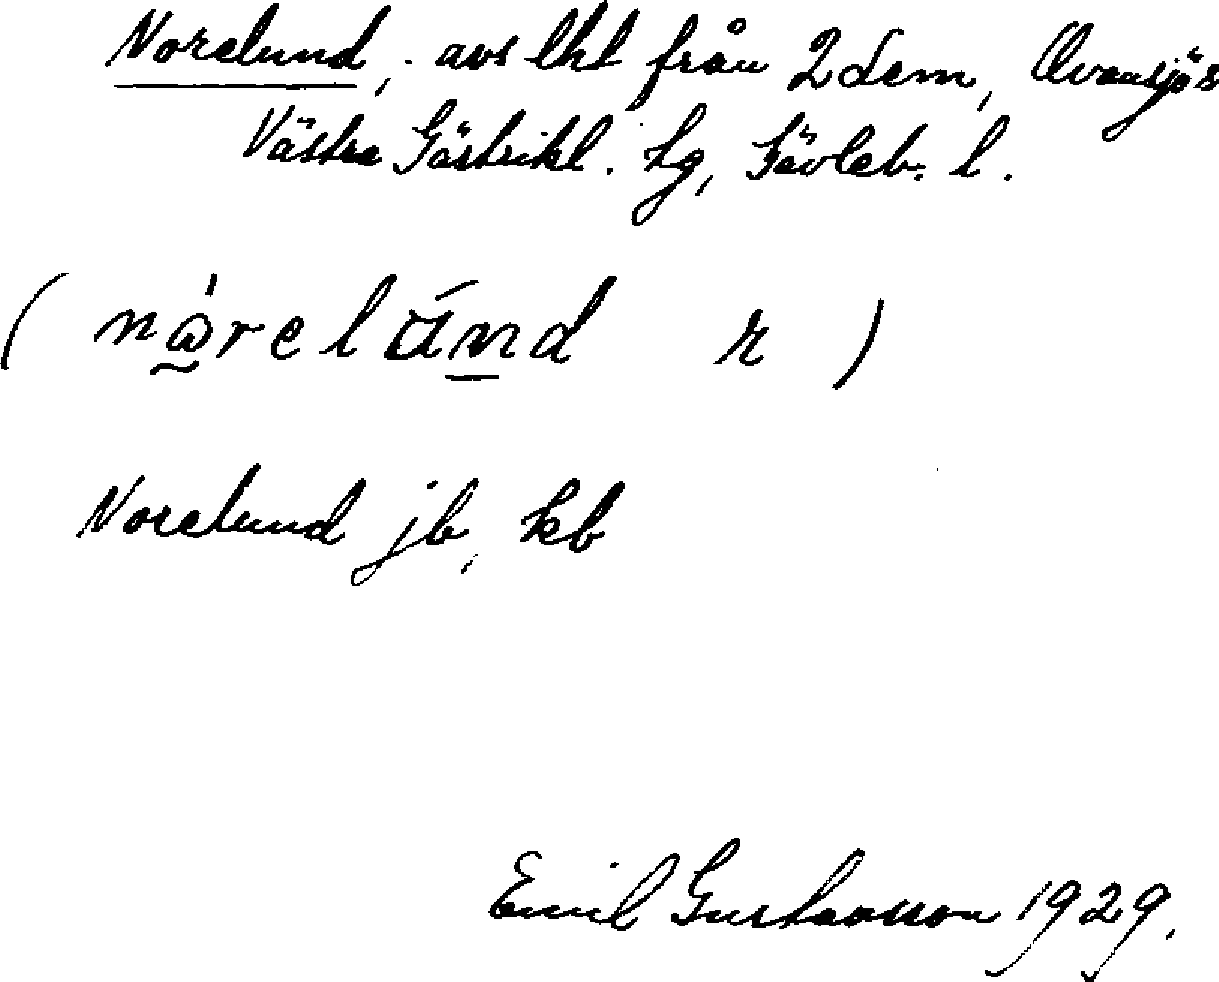 Norelund, avs lht från 2 dem, Ovansjö s
Västra Gästrikl. tg, Gävleb. l.
(nårelund r)
Norelund jb, kb
Emil Gustavsson 1929.